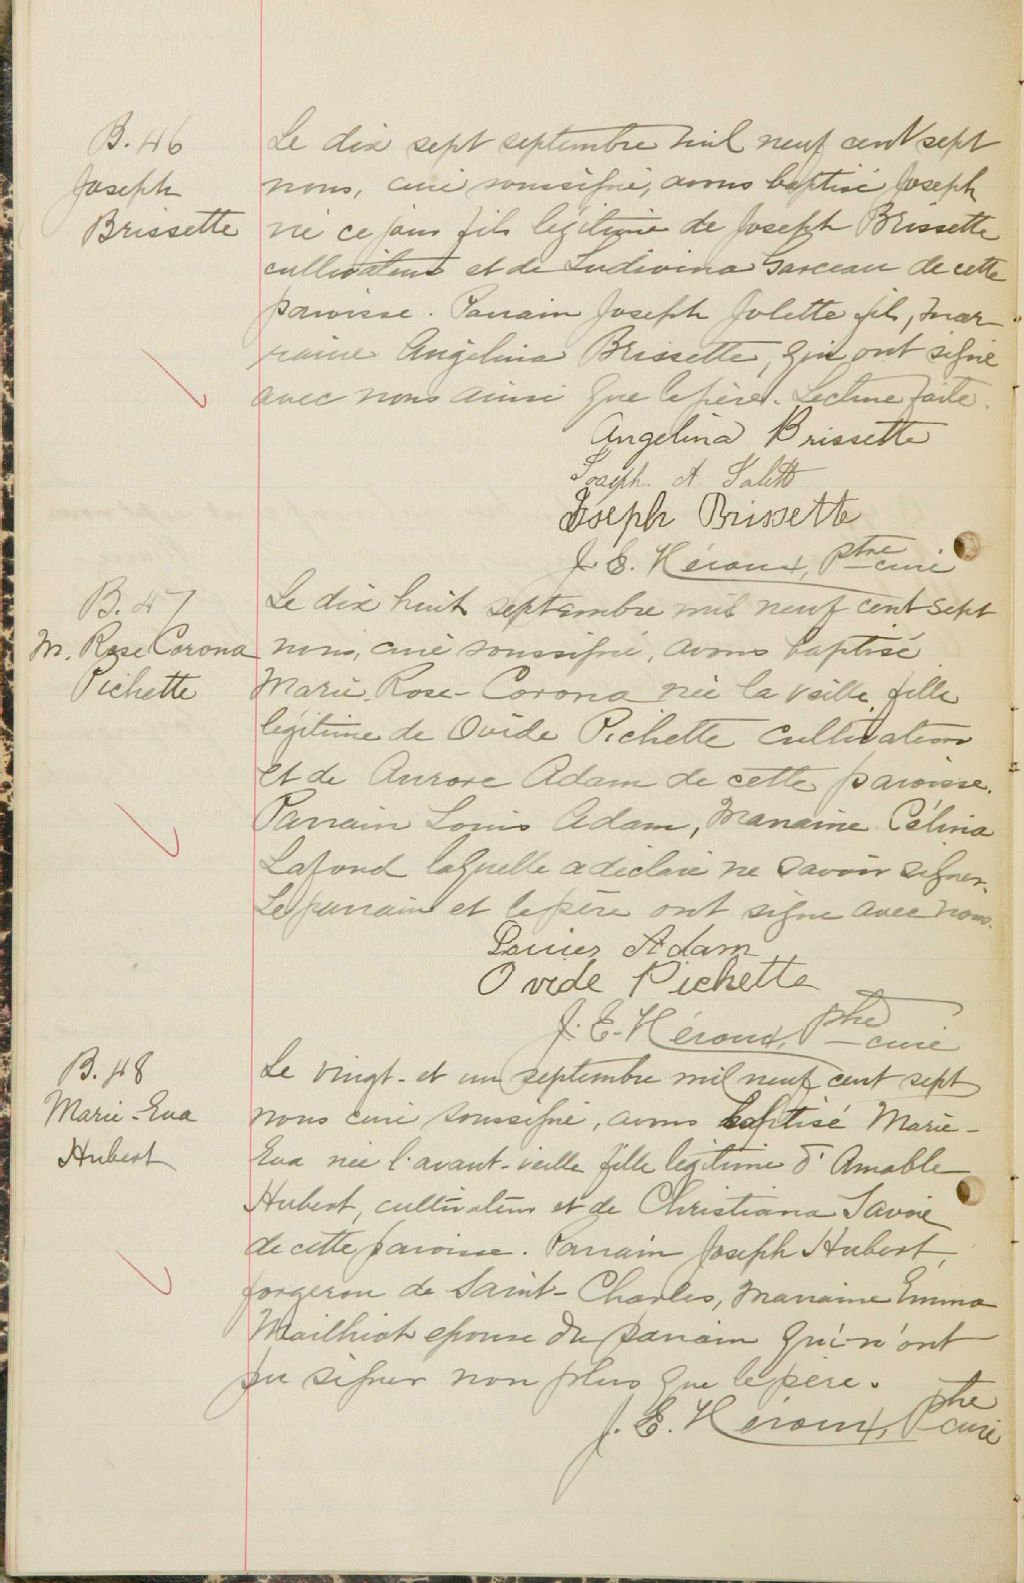 B. 46
Joseph
Brissette
Le dix sept septembre mil neuf cent sept
nous, curé soussigné, avons baptisé Joseph
né ce jour fils légitime de Joseph Brissette
cultivateur et de Ludivina Garceau de cette
paroisse. Parrain Joseph Jolette fils, mar-
raine Angélina Brissette, qui ont signé
avec nous ainsi que le père. Lecture faite.
Angelina Brissette
Joseph. A.
Joseph Brissette
J. E. Héroux, Ptre curé
B. 47
M. Rose Corona
Pichette
Le dix huit septembre mil neuf cent sept
nous, curé soussigné, avons baptisé
Marie Rose-Corona née la veille, fille
légitime de Ovide Pichette cultivateur
et de Aurore Adam de cette paroisse.
Parrain Louis Adam, Marraine Célina
Lafond laquelle a déclaré ne savoir signer.
Le parrain et le père ont signé avec nous.
Adam
Ovide Pichette
J. E. Héroux, Ptre curé
B. 48
Marie-Eva
Hubert
Le vingt-et un septembre mil neuf cent sept
nous curé soussigné, avons baptisé Marie-
Eva née l'avant-veille fille légitime d'Amable
Hubert, cultivateur et de Christiana Savoie
de cette paroisse. Parrain Joseph Hubert,
forgeron de Saint-Charles, Marraine Emma
Mailhiot epouse du parrain qui n'ont
pu signer non plus que le père.
J. E. Héroux, Ptre curé